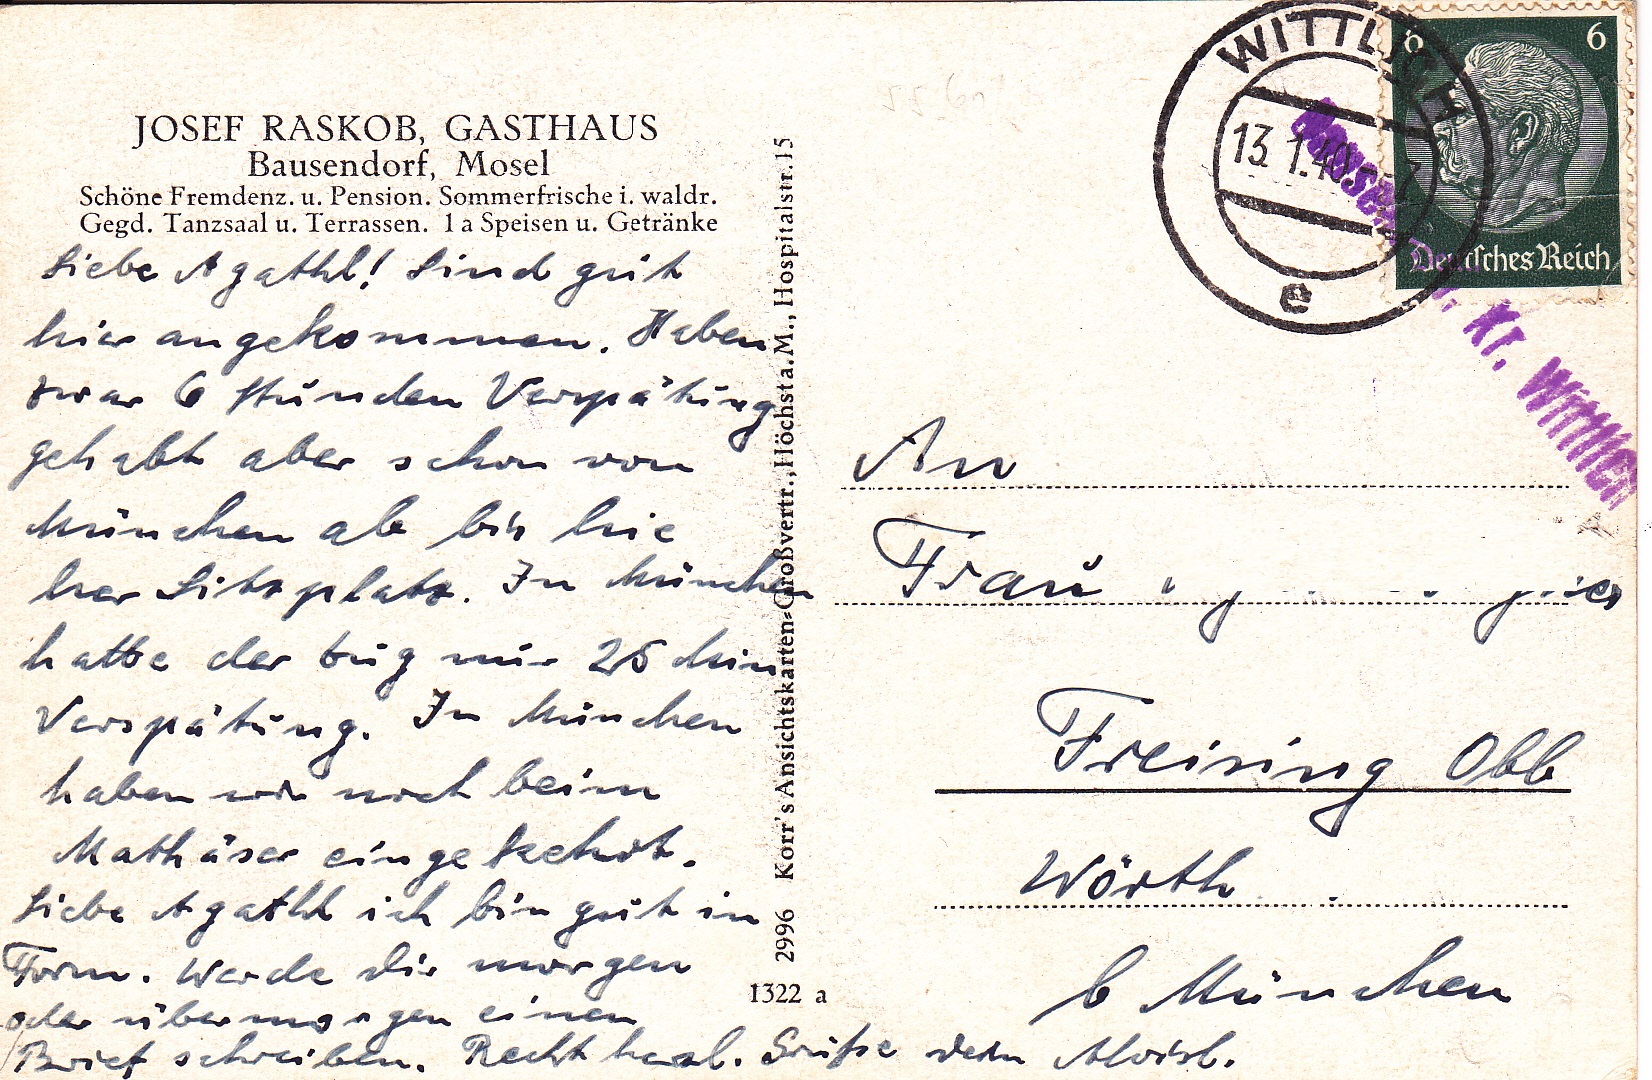 JOSEF RASKOB, GASTHAUS
Bausendorf, Mosel
Schöne Fremdenz. u. Pension. Sommerfrische i. waldr.
Gegd. Tanzsaal u. Terrassen. 1 a Speisen u. Getränke
Liebe Agathl! Sind gut
hier angekommen. Haben
zwar 6 Stunden Verspätung
gehabt aber schon von
München ab bis hie
her Sitzplatz. In München
hatte der Zug nur 25 Min
Verspätung. In München
haben wir noch beim
Mathäser eingekehrt.
Liebe Agathl ich bin gut in
Form. Werde dir morgen
oder übermorgen einen
Brief schreiben. Recht herzl. Grüße dein Aloisl.
2996 Korr's Ansichtskarten-Großvertr., Höchst a. M., Hospitalstr. 15
1322 a
WITTLICH
13.1.40
e
6 6
Deutsches Reich
Kr. Wittlich
An
Frau
Freising Obb
Wörth
b München